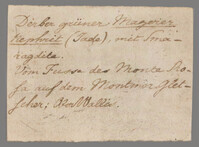 Derber grüner Magerer
Nephrit (Jade), mit Sma-
ragdite.
Vom Fusse des Monte Ro-
sa auf dem Montmor Glet-
scher; Ober Wallis.